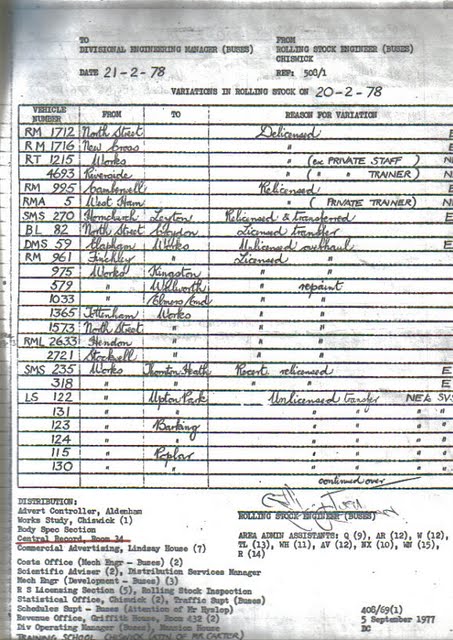 TO FROM
DIVISIONAL ENGINEERING MANAGER (BUSES) ROLLING STOCK ENGINEER (BUSES)
CHISWICK
DATE 21-2-78 REF: 508/1
VARIATIONS IN ROLLING STOCK ON 20-2-78
VEHICLE NUMBER FROM TO REASON FOR VARIATION
RM 1712 North Street Delicensed E
RM 1716 New Cross " E
RT 1215 Works " (ex PRIVATE STAFF) N
4693 Riverside " ( " TRAINER) N
RM 995 Camberwell Relicensed E
RMA 5 West Ham " (PRIVATE TRAINER) N
SMS 270 Hornchurch Leyton Relicensed & transferred E
BL 82 North Street Croydon Licensed transfer
DMS 59 Clapham Works Unlicensed overhaul
RM 961 Finchley " Licensed "
975 Works Kingston " "
579 " Walworth " repaint
1033 " " "
1365 Tottenham Works " "
1573 North Street " " "
RML 2633 Hendon " " "
2721 Stockwell " " "
SMS 235 Works Thornton Heath Recert. relicensed E
318 " " " " E
LS 122 " Upton Park Unlicensed transfer NEW SVS
131 " " " " " "
123 " Barking " " " "
124 " " " " " "
115 " Poplar " " " "
130 " " " " " "
continued over
ROLLING STOCK ENGINEER (BUSES)
DISTRIBUTION:
Advert Controller, Aldenham
Works Study, Chiswick (1)
Body Spec Section
Central Record, Room 34
Commercial Advertising, Lindsey House (7)
Costs Office (Mech Engr - Buses) (2)
Scientific Adviser (2), Distribution Services Manager
Mech Engr (Development - Buses) (3)
R S Licensing Section (5), Rolling Stock Inspection
Statistical Office, Chiswick (2), Traffic Supt (Buses)
Schedules Supt - Buses (Attention of Mr Hyslop)
Revenue Office, Griffith House, Room 432 (2)
Div Operating Manager (Buses), Mansion House
TRAINING SCHOOL CHISWICK (ATTN OF MR CARTER)
AREA ADMIN ASSISTANTS: Q (9), AR (12), W (12),
TL (13), WH (11), AV (12), NX (10), WN (15),
R (14)
408/69(1)
5 September 1977
DC